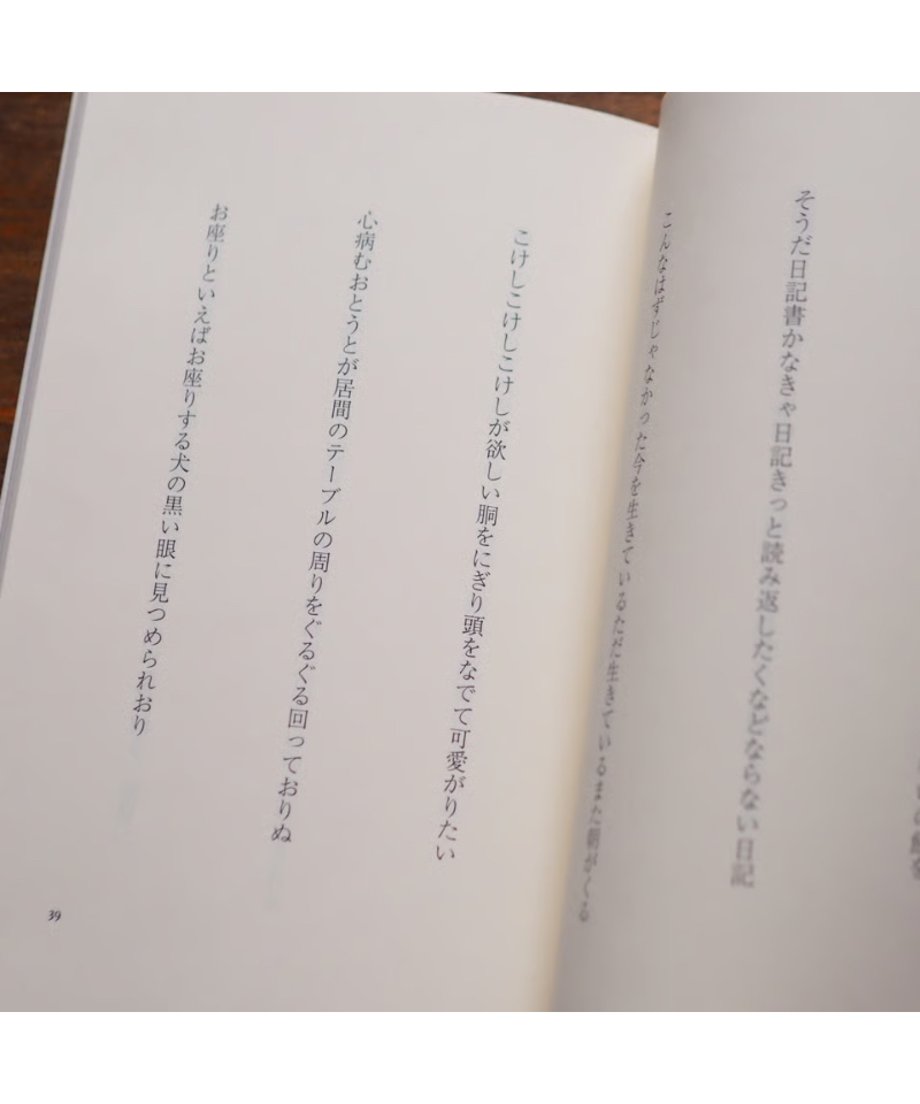 そうだ日記書かなきゃ日記きっと読み返したくなどならない日記
こんなはずじゃなかった今を生きているただ生きているまた朝がくる
こけしこけしこけしが欲しい胴をにぎり頭をなでて可愛がりたい
心病むおとうとが居間のテーブルの周りをぐるぐる回っておりぬ
お座りといえばお座りする犬の黒い眼に見つめられおり
39